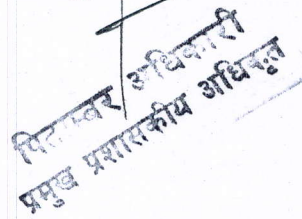 पिताम्बर अधिकारी
प्रमुख प्रशासकीय अधिकृत